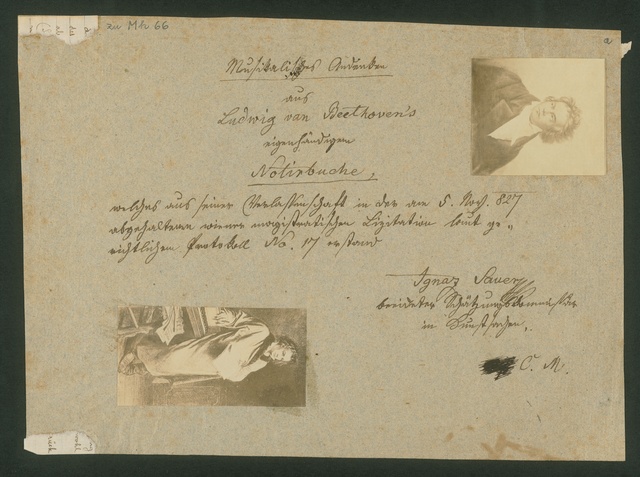 zu Mh. 66
a
Musikalisches Andenken
aus
Ludwig van Beethoven's
eigenhändigem
Notirbuche,
welches aus seiner Verlassenschaft in der am 5. Nov. 827
abgehaltenen wiener magistratischen Lizitation laut ge-
richtlichen Protokoll No. 17 erstand
Ignaz Sauer
beeideter Schätzungskommissär
in Kunstsachen.
C. M.